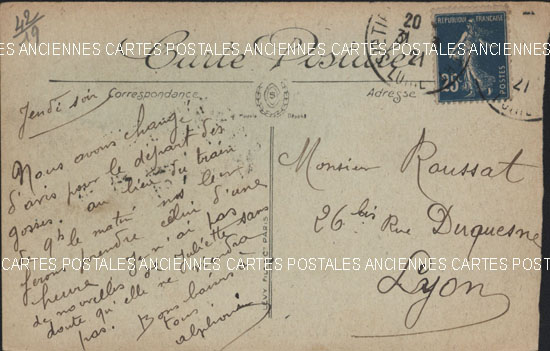 42
19
Carte Postale
Correspondance
Adresse
RÉPUBLIQUE FRANÇAISE
25
POSTES
20
31
21
LOIRE
21
Jeudi soir
Nous avons changé
d'avis pour le départ des
gosses. au lieu du train
de 9h le matin nos leur
ferons prendre celui d'une
heure. je n'ai pas
de nouvelles de Juliette sans
doute qu'elle ne
pas. Bons baisers à
tous.
alphonse
Monsieur Roussat
26 bis Rue Duquesne
Lyon
PARIS
CARTES POSTALES ANCIENNES CARTES POSTALES ANCIENNES CARTES POSTALES
CARTES POSTALES ANCIENNES CARTES POSTALES ANCIENNES CARTES POSTALES